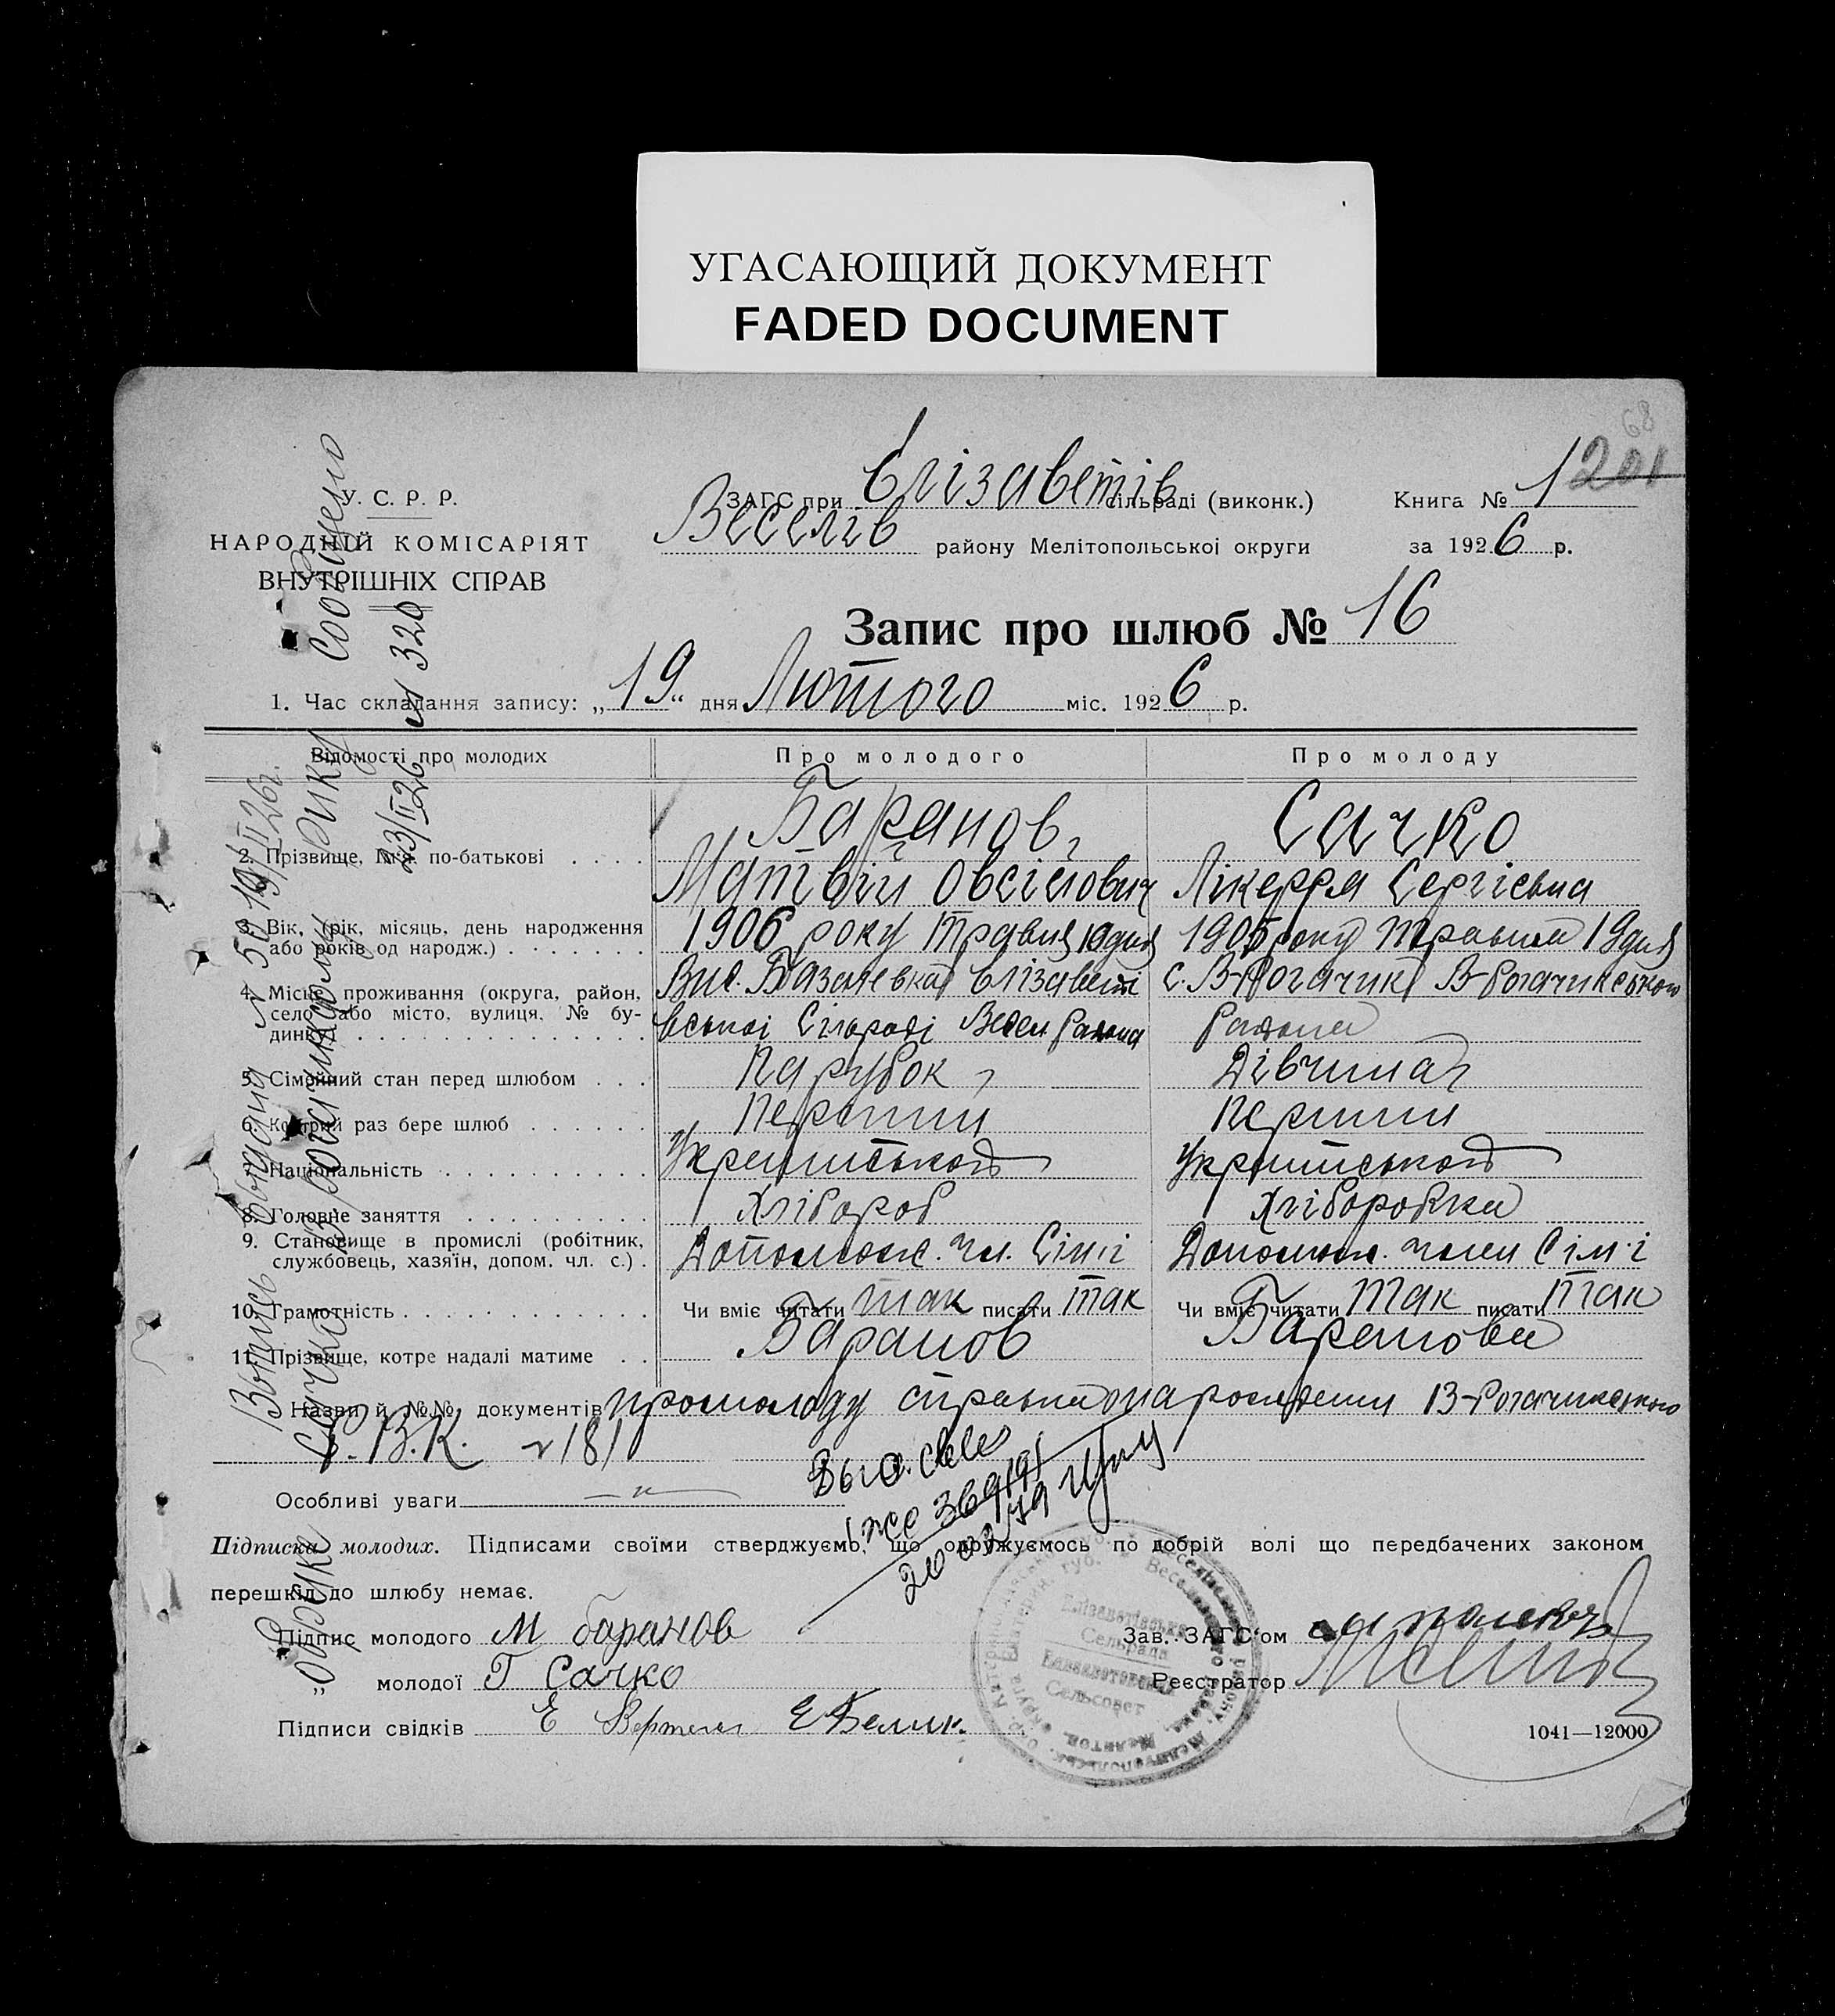 УГАСАЮЩИЙ ДОКУМЕНТ
FADED DOCUMENT
68
201
У. С. Р. Р.
НАРОДНІЙ КОМІСАРІЯТ
ВНУТРІШНІХ СПРАВ
ЗАГС при Єлізаветів сільраді (виконк.)
Веселів району Мелітопольської округи
Книга № 1
за 1926 р.
Запис про шлюб № 16
1. Час складання запису: „19“ дня Лютого міс. 1926 р.
Відомості про молодих
Про молодого
Про молоду
2. Прізвище, ім'я по-батькові . . . .
Баранов,
Матвій Овсійович
Сачко
Лікерря Сергієвна
3. Вік, (рік, місяць, день народження
або років од народж.) . . . . . .
1906 року травня 10 дня
1905 року травня 19 дня
4. Місце проживання (округа, район,
село або місто, вулиця, № бу-
динку) . . . . . . . . . . . . . .
Вис. Базалевка Єлізавет
вської Сільраді Весел. района
с. В-Рогачик В-Рогачикського
района
5. Сімейний стан перед шлюбом . . .
Парубок
Дівчина
6. Котрий раз бере шлюб . . . . . .
Перший
Перший
7. Національність . . . . . . . . . .
8. Головне заняття . . . . . . . . .
Хлібороб
Хліборобка
9. Становище в промислі (робітник,
службовець, хазяїн, допом. чл. с.) .
Допомож. чл. Сімї
Допомож. член Сім'ї
10. Грамотність . . . . . . . . . . . .
Чи вміє читати так писати так
Чи вміє читати так писати так
11. Прізвище, котре надалі матиме . .
Баранов
Баранова
Назви й №№ документів про молоду справка о народженні В-Рогачикського
Р.В.К. № 181
Особливі уваги — „ —
Підписка молодих. Підписами своїми стверджуємо, що одружуємось по добрій волі що передбачених законом
перешкід до шлюбу немає.
Підпис молодого М баранов
„ молодої Г Сачко
Підписи свідків Е Е Белик
Зав. ЗАГС'ом
Реєстратор
1041—12000
Єлізаветівська
Сельрада
Елизаветовский
Сельсовет
Выпись выдана № 50 19/II 26г.
Сообщено
23/II 26 № 320